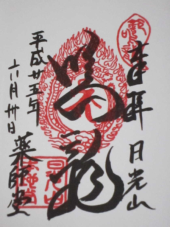 奉拝 日光山
鳴龍
平成廿五年
十一月卅日 薬師堂